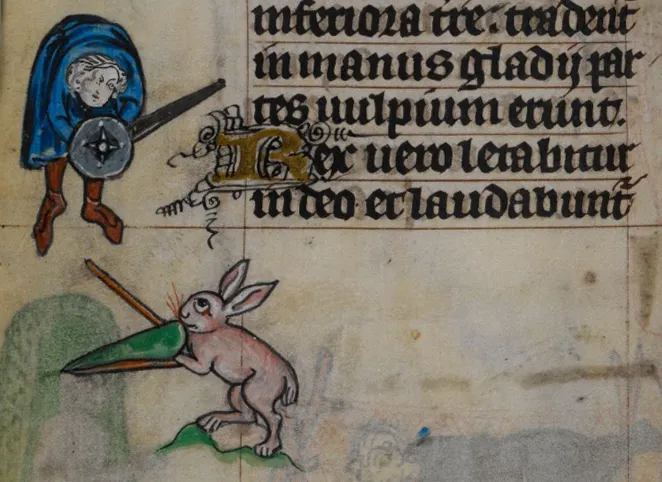 inferiora tre. tradent
in manus gladij par
tes uulpium erunt.
Rex uero letabitur
in deo et laudabunt